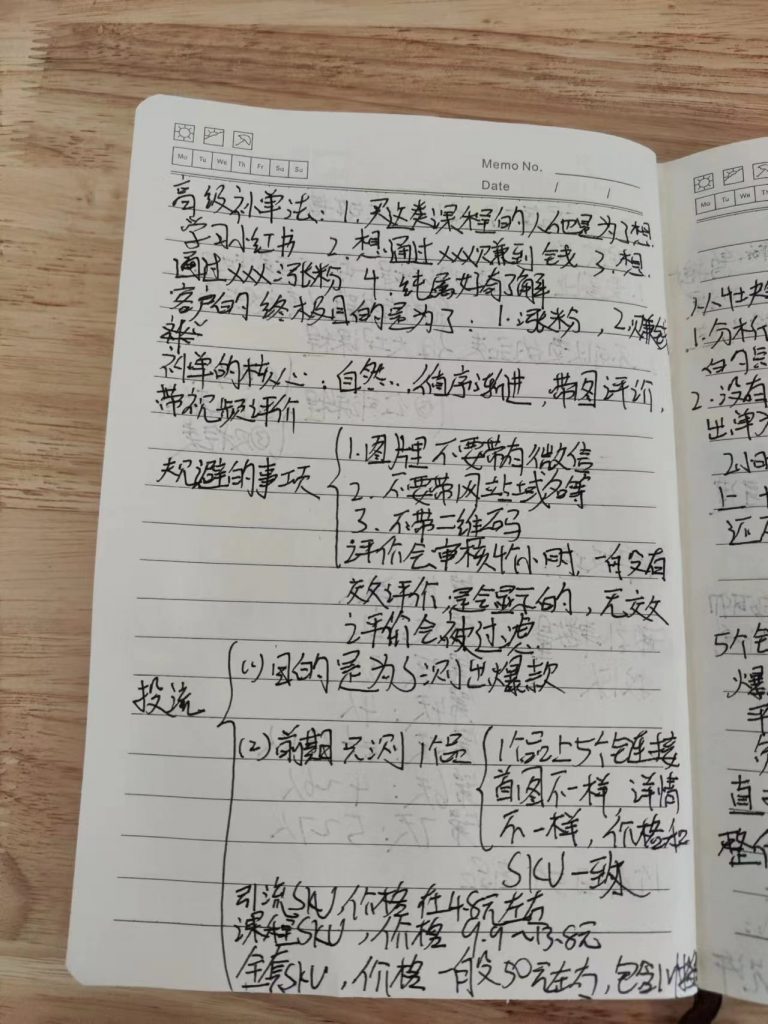 Mo Tu We Th Fr Sa Su
Memo No.
Date / /
高级补单法：1. 买这类课程的人他是为了想
学习小红书 2. 想通过xxx赚到钱 3. 想
通过xxx涨粉 4. 纯属好奇了解
客户的终极目的是为了：1. 涨粉，2. 赚钱
补单的核心：自然，循序渐进，带图评价，
带视频评价
规避的事项
1. 图片里不要带有微信
2. 不要带网站域名等
3. 不带二维码
评价会审核4个小时，一般没有
效评价，是会显示的，无效
评价会被过滤
投流
(1) 目的是为了测出爆款
(2) 前期只测1个品
1个品上5个链接
首图不一样 详情
不一样，价格和
SKU一致
引流SKU，价格在4.8元左右
课程SKU，价格9.9~13.8元
全套SKU，价格一般50元左右，包含
Mo Tu We Th
1. 分析
2. 没有
出单
2小时
上一
还
5个
爆
平
直
整个